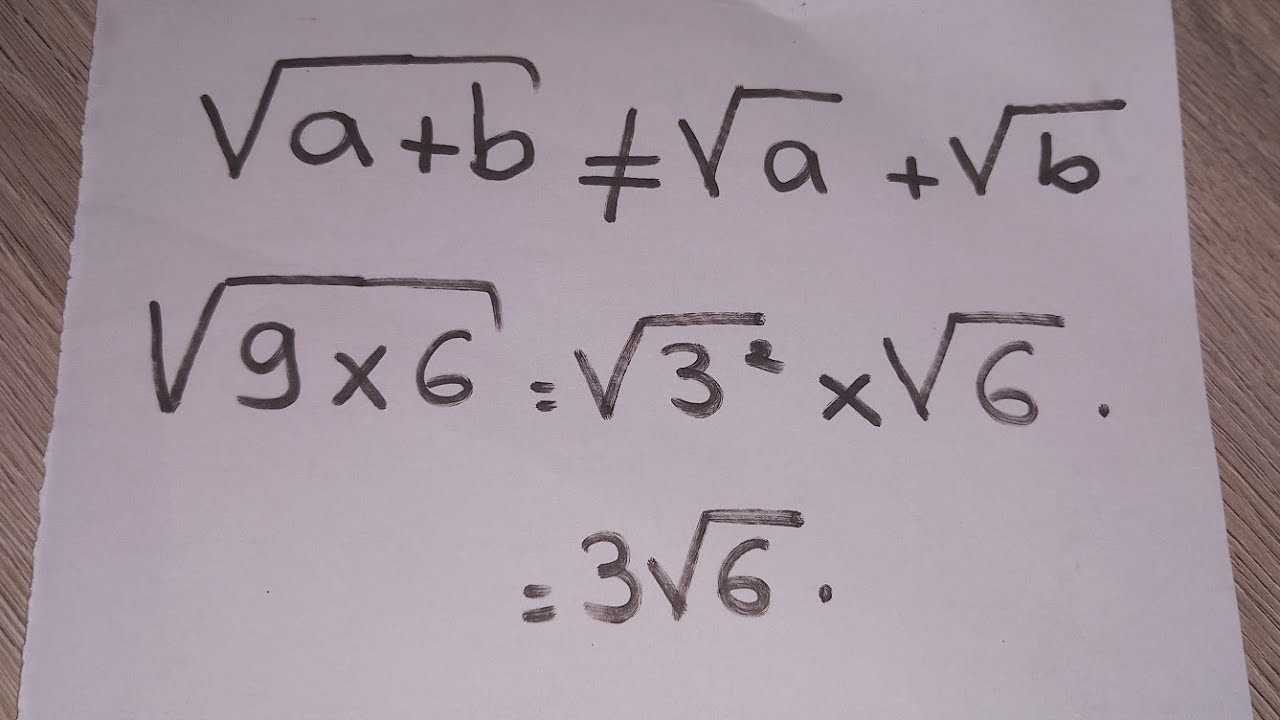 √(a+b) ≠ √a + √b
√(9×6) = √(3²) × √6 .
= 3√6 .